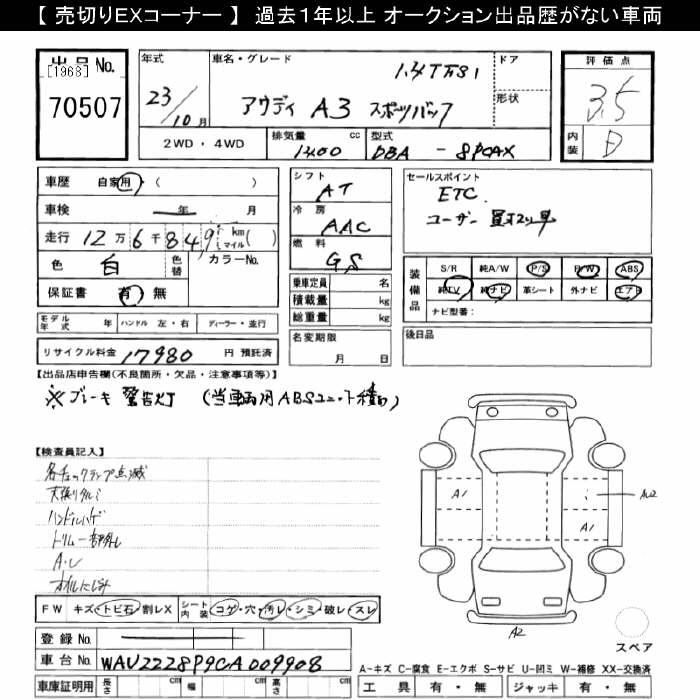 【 売切りEXコーナー 】 過去1年以上 オークション出品歴がない車両
出品 No.
[1968]
70507
年式
23/10月
車名・グレード
1.4TFSI
アウディ A3 スポーツバック
ドア
形状
評価点
3.5
内装 D
2WD・4WD
排気量 1400 cc
型式 DBA - 8PCAX
車歴 自家用 ( )
車検 年 月
走行 12万6千849 km マイル ( )
色 白 色替 カラーNo.
保証書 有・無
シフト AT
冷房 AAC
燃料 GS
乗車定員 名
積載量 kg
総重量 kg
セールスポイント
ETC
ユーザー買取車
装備品
S/R 純A/W P/S P/W ABS
純TV 純ナビ 革シート 外ナビ エアB
ナビ型番:
モデル年式 年 ハンドル 左・右 ディーラー・並行
リサイクル料金 17980 円 預託済
名変期限 月 日
後日品
【出品店申告欄(不良箇所・欠品・注意事項等)】
※ブレーキ 警告灯 (当車両用ABSユニット積固)
【検査員記入】
各チェックランプ点滅
天張りタルミ
ハンドルハゲ
トリム一部外れ
A・U
オイルにじみ
A1
A1
AU2
A2
スペア
FW キズ・トビ石・割レX シート内装 コゲ・穴・汚レ・シミ・破レ・スレ
登録 No.
車台 No. WAUZZZ8P9CA009908
車庫証明用 長さ cm 幅 cm 高さ cm
A-キズ C-腐食 E-エクボ S-サビ U-凹ミ W-補修 XX-交換済
工具 有・無 ジャッキ 有・無